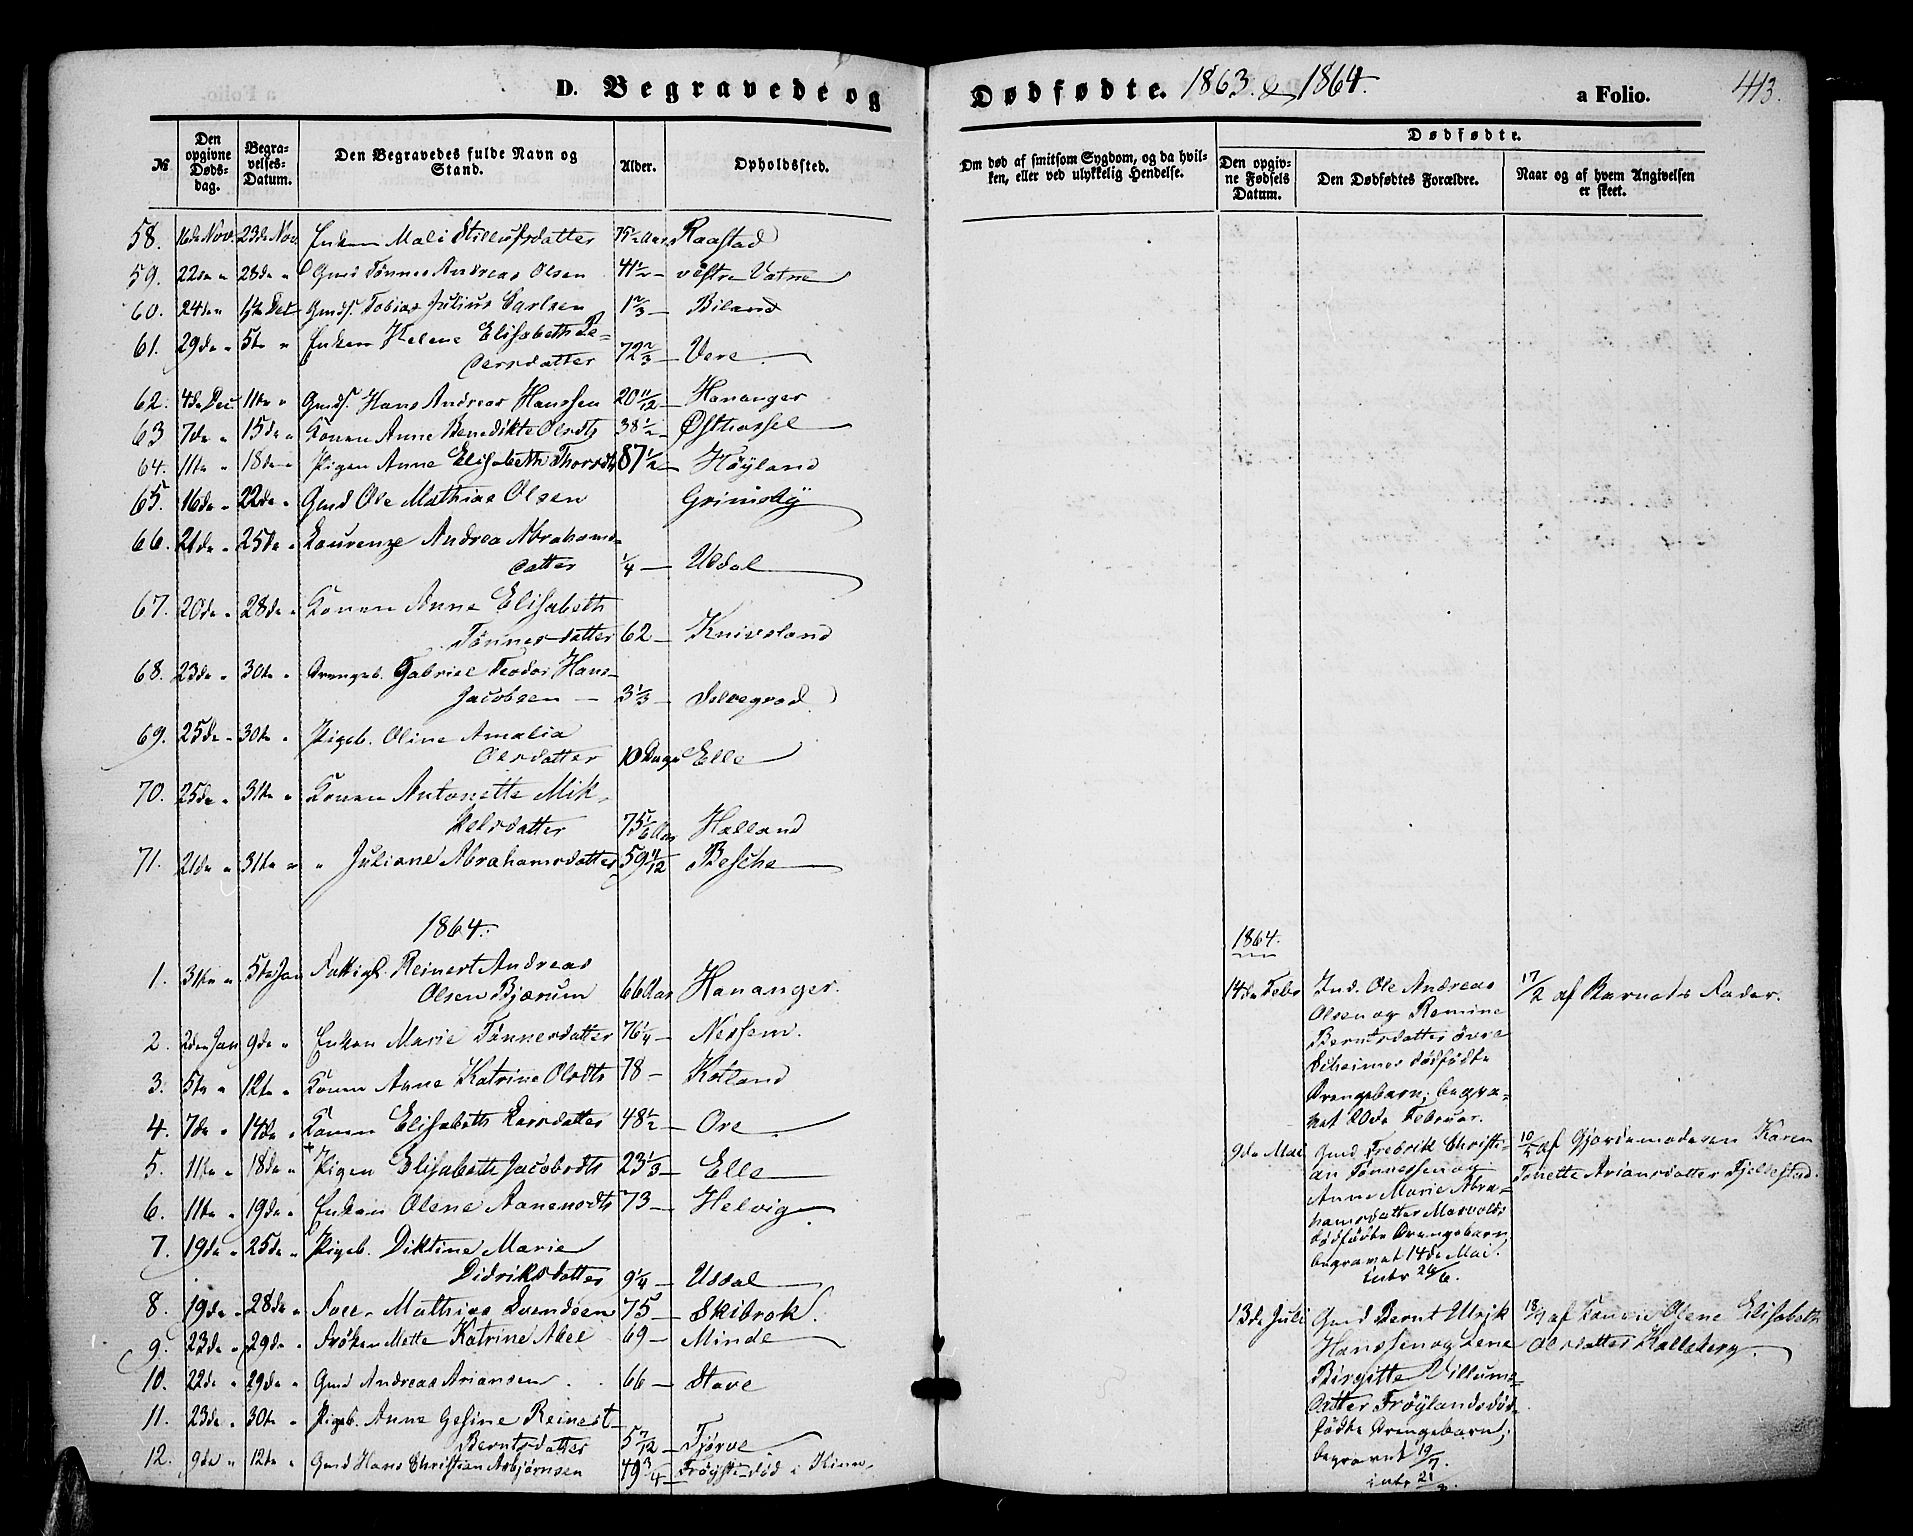 D. Begravede og
№
Den opgivne Døds-dag.
Begra-velses-Datum.
Den Begravedes fulde Navn og Stand.
Alder.
Opholdssted.
58. 16de Nov. 23de Nov. Enken Mali Stillufsdatter 75 Aar Raastad
59. 22de " 28de " Gmd Tønnes Andreas Olsen 41 1/2 — vestre Vatne
60. 24de " 1ste Dec Gmds. Tobias Julius Carlsen 1 2/3 — Biland
61. 29de " 5te " Enken Helene Elisabeth Pe-
dersdatter 72 2/3 — Vere
62. 4de Dec. 11te " Gmds. Hans Andreas Hanssen 20 11/12 — Hananger
63 7de " 15de " Konen Anne Benedikte Olsdtr 38 1/2 — Østhassel
64. 11te " 18de " Pigen Anne Elisabeth Thorsdtr 87 1/2 — Høyland
65. 16de " 22de " Gmd Ole Mathias Olsen Grimsby
66. 21de " 25de " Laurenze Andrea Abrahams-
datter 1/4 — Ulsdal
67. 20de " 28de " Konen Anne Elisabeth
Tønnesdatter 62 — Knivsland
68. 23de " 30te " Drengeb. Gabriel Teodor Hans
Jacobsen — 3 1/3 —
69. 25de " 30te " Pigeb. Oline Amalia
Olsdatter 10 Dage Elle
70. 25de " 31te " Konen Antonette Mik-
kelsdatter 75 1/6 Aar Halland
71. 21de " 31te " " Juliane Abrahamsdatter 59 11/12 — Besche
1864.
1. 31te " 5te Jan Fattigl. Reinert Andreas
Olsen Bjærum 66 Aar Hananger.
2. 2den Jan 9de " Enken Marie Tønnesdatter 76 1/4 — Nessem.
3. 5te " 12te " Konen Anne Katrine Olsdtr 78 — Kotland
4. 7de " 14de " Konen Elisabeth Larsdatter 48 1/2 — Ore
5. 11te " 18de " Pigen Elisabeth Jacobsdtr 23 1/3 — Elle
6. 11te " 19de " Enken Olene Aanensdtr 73 — Helvig
7. 19de " 25de " Pigeb. Diktine Marie
Didriksdatter 9 1/4 — Usdal
8. 19de " 28de " Mathias Svendsen 75 — Skibrok.
9. 23de " 29de " Frøken Mette Katrine Abel 69 — Minde
10. 22de " 29de " Gmd Andreas Ariansen 66 — Stave
11. 23de " 30te " Pigeb. Anne Gesine Reinert
Berntsdatter 5 7/12 — Tjørve
12. 9de " 12te " Gmd Hans Christian Asbjørnsen 49 3/4 — død i
Dødfødte. 1863 & 1864. a Folio. 413.
Om død af smitsom Sygdom, og da hvil-ken, eller ved ulykkelig Hendelse.
Dødfødte.
Den opgiv-ne Fødsels Datum.
Den Dødfødtes Forældre.
Naar og af hvem Angivelsen er skeet.
1864.
14de Febr Ind. Ole Andreas 17/2 af Barnets Fader.
Olsen og Remine
Berntsdatter øvre
dødfødte
Drengebarn; begra-
vet 20de Februar.
9de Mai Gmd Fredrik Christi- 10/5 af Gjordemoderen Karen
an Tønnessen og Tonette Ariansdatter Fjeldestad.
Anne Marie Abra-
hamsdatter Marvolds
dødfødte Drengebarn
begravet 14de Mai.
intr 26/6.
13de Juli Gmd Bernt Ulrik 18/7 af Konen Olene Elisabeth
Hanssen og Lene Olsdatter Kalleberg
Birgitte Villums-
datter Frøylands død-
fødte Drengebarn;
begravet 19/7.
intr 21/